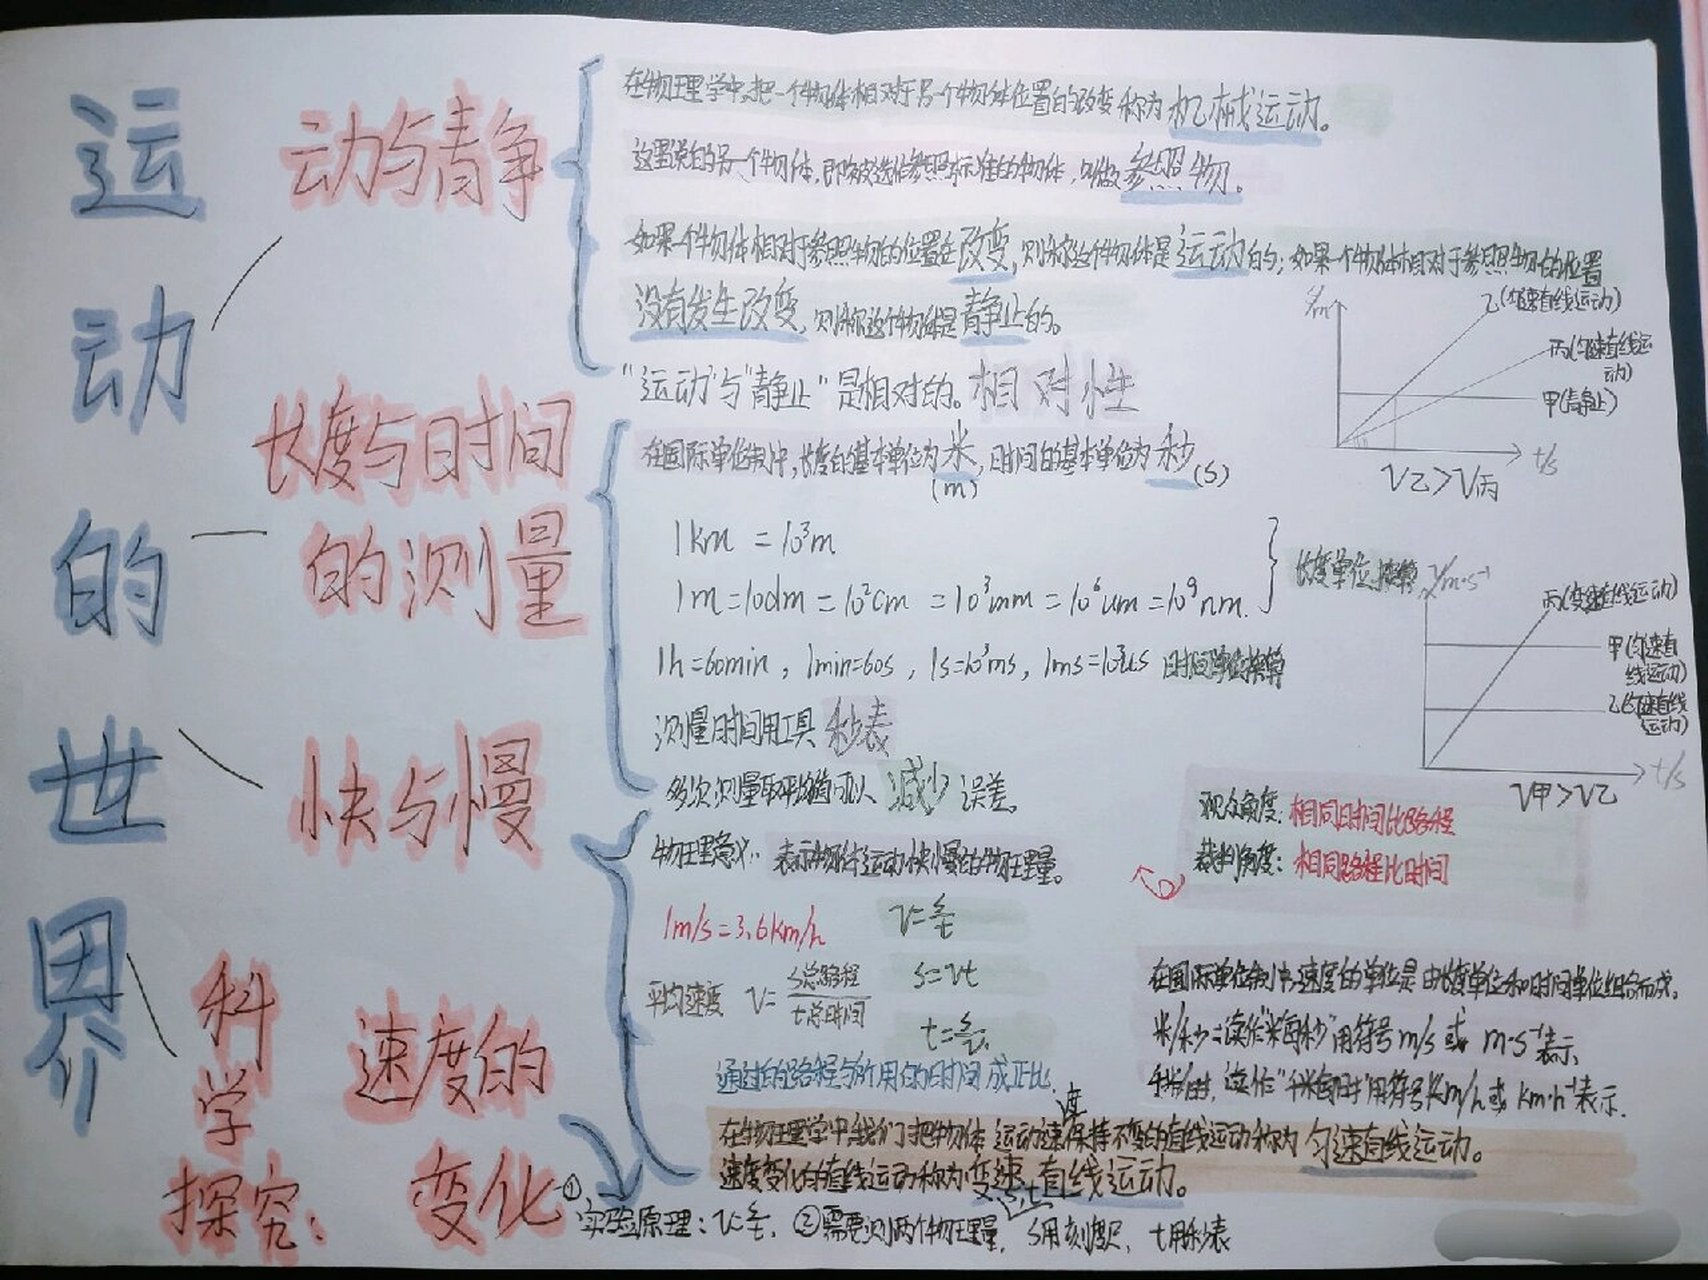 运动的世界
动与静
在物理学中,把一个物体相对于另一个物体位置的改变称为机械运动。
这里说的另一个物体,即被选作参照标准的物体,叫做参照物。
如果一个物体相对于参照物的位置在改变,则称这个物体是运动的;如果一个物体相对于参照物的位置
没有发生改变,则称这个物体是静止的。
"运动"与"静止"是相对的。相对性
s/m
乙(匀速直线运动)
丙(匀速直线运
动)
甲(静止)
t/s
V乙>V丙
长度与时间
的测量
在国际单位制中,长度的基本单位为米,时间的基本单位为秒
(m)
(s)
1km=10³m
1m=10dm=10²cm=10³mm=10⁶um=10⁹nm.
长度单位换算
1h=60min,1min=60s,1s=10³ms,1ms=10³us 时间单位换算
测量时间用工具 秒表
多次测量取平均值可以减少误差。
V/m·s⁻¹
丙(变速直线运动)
甲(匀速直
线运动)
乙(匀速直线
运动)
t/s
V甲>V乙
快与慢
物理意义:表示物体运动快慢的物理量。
观众角度:相同时间比路程
裁判角度:相同路程比时间
1m/s=3.6km/h
v=s/t
平均速度 v=s总路程/t总时间
s=vt
t=s/v
通过的路程与所用的时间成正比
在国际单位制中,速度的单位是由长度单位和时间单位组合而成。
米/秒:读作"米每秒"用符号m/s或m·s⁻¹表示,
千米/时,读作"千米每时"用符号km/h或km·h⁻¹表示.
度
在物理学中我们把物体运动速保持不变的直线运动称为匀速直线运动。
速度变化的直线运动称为变速直线运动。
科学
探究:
速度的
变化
①实验原理:v=s/t,②需要测两个物理量,s用刻度尺,t用秒表
s,t